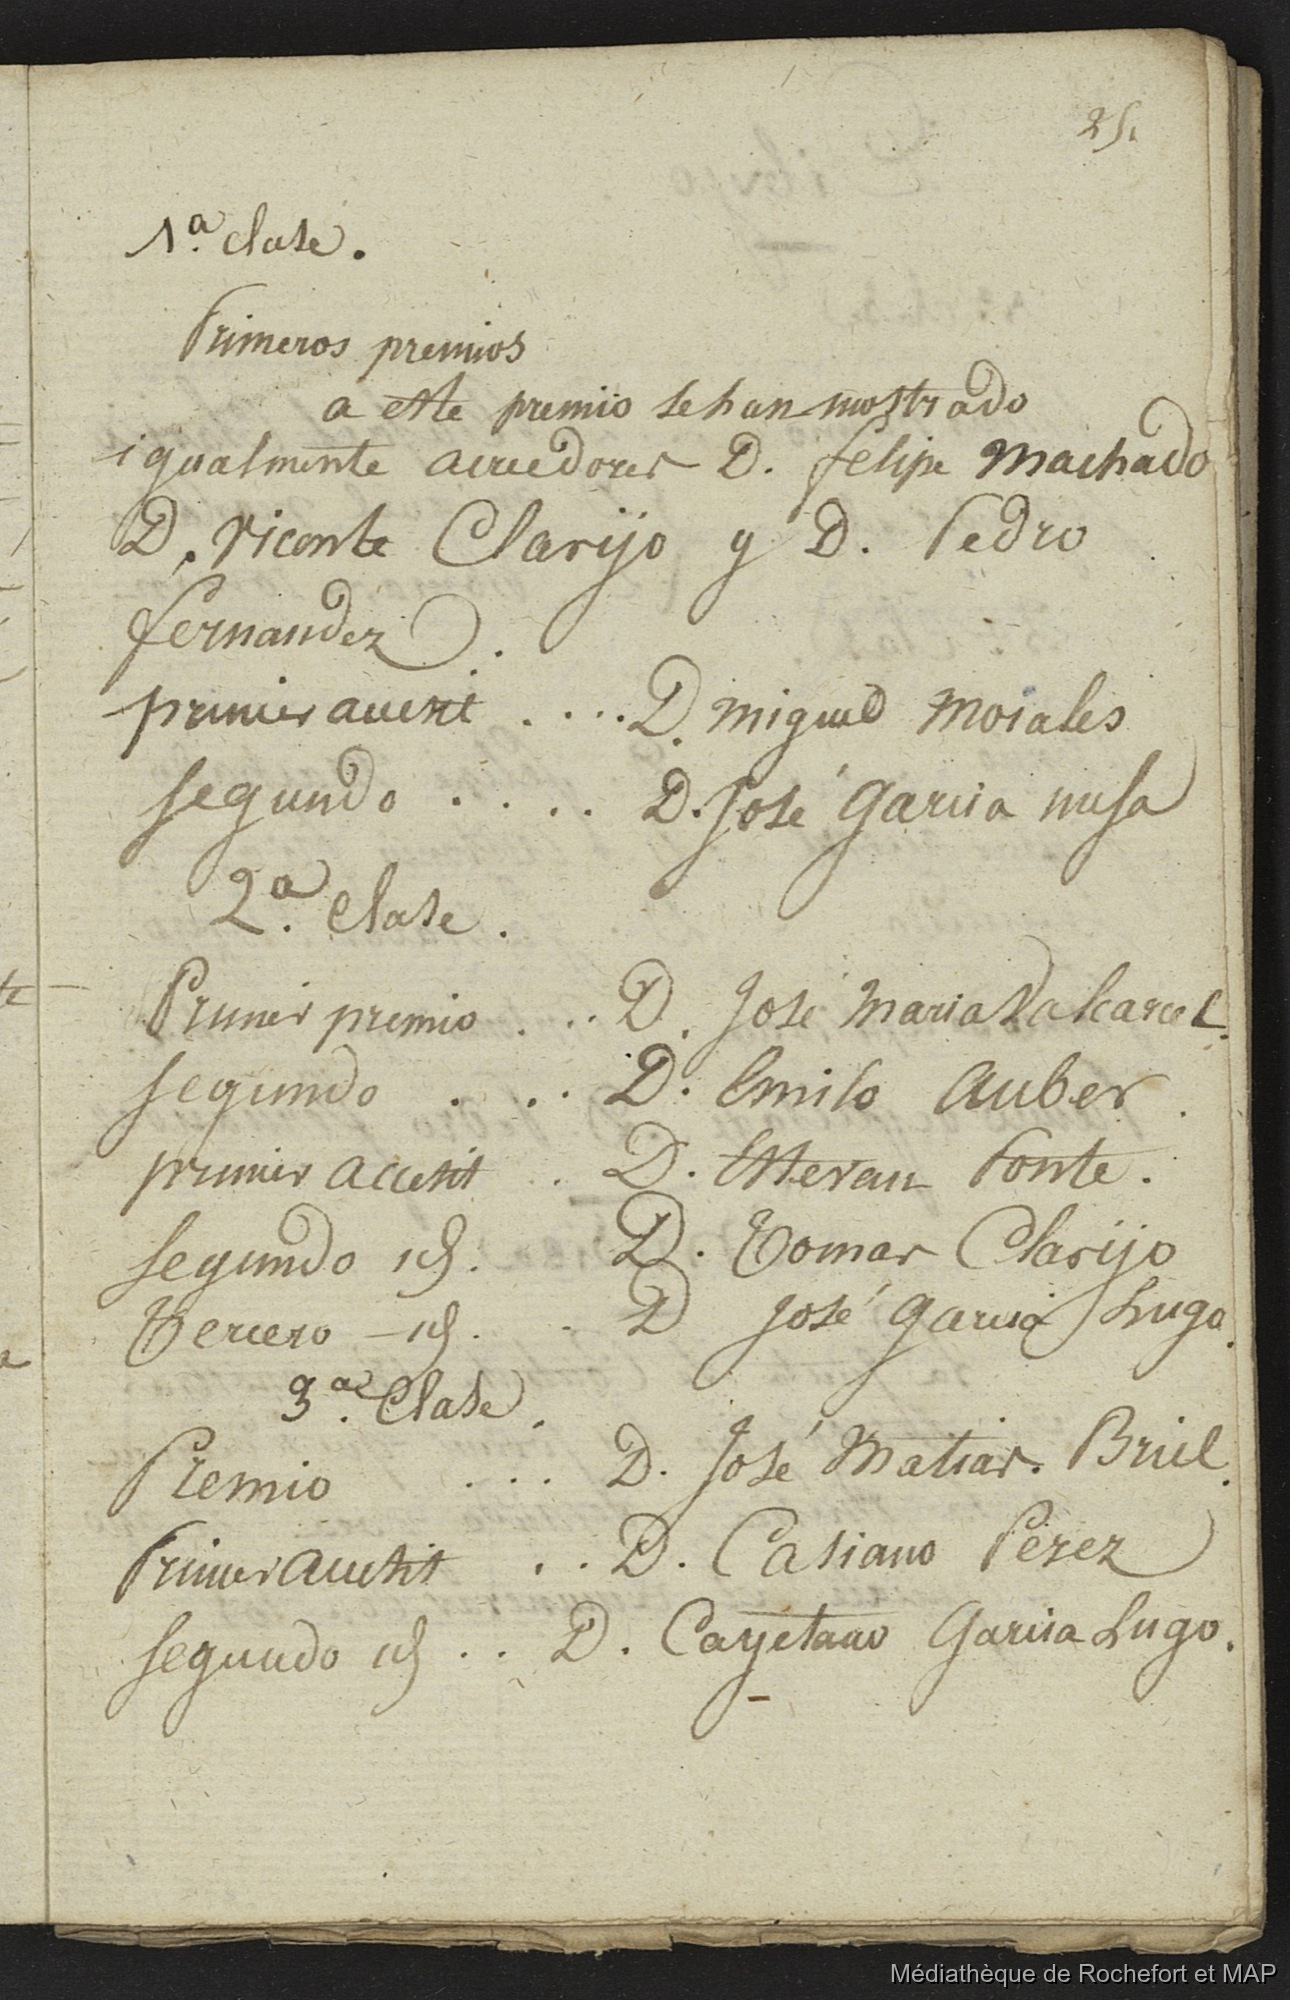 25.
1.ª clase.
Primeros premios
a este premio se han mostrado
igualmente acreedores D. felipe Machado
D. Vicente Clarijo y D. Pedro
fernandez.
primer accesit . . . . D. Miguel Morales
segundo . . . . D. José Garcia mesa
2.ª clase.
Primer premio . . . D. José Maria Valcarcel.
segundo . . . D. Emilo Auber.
primer accesit . . D. Estevan Fonte.
segundo id. D. Tomas Clarijo
Tercero - id. . D José Garcia Lugo.
3.ª Clase.
Premio . . . D. José Matias. Briel.
Primer accesit . . D. Casiano Perez
segundo id . . D. Cayetano Garcia Lugo.
Médiathèque de Rochefort et MAP